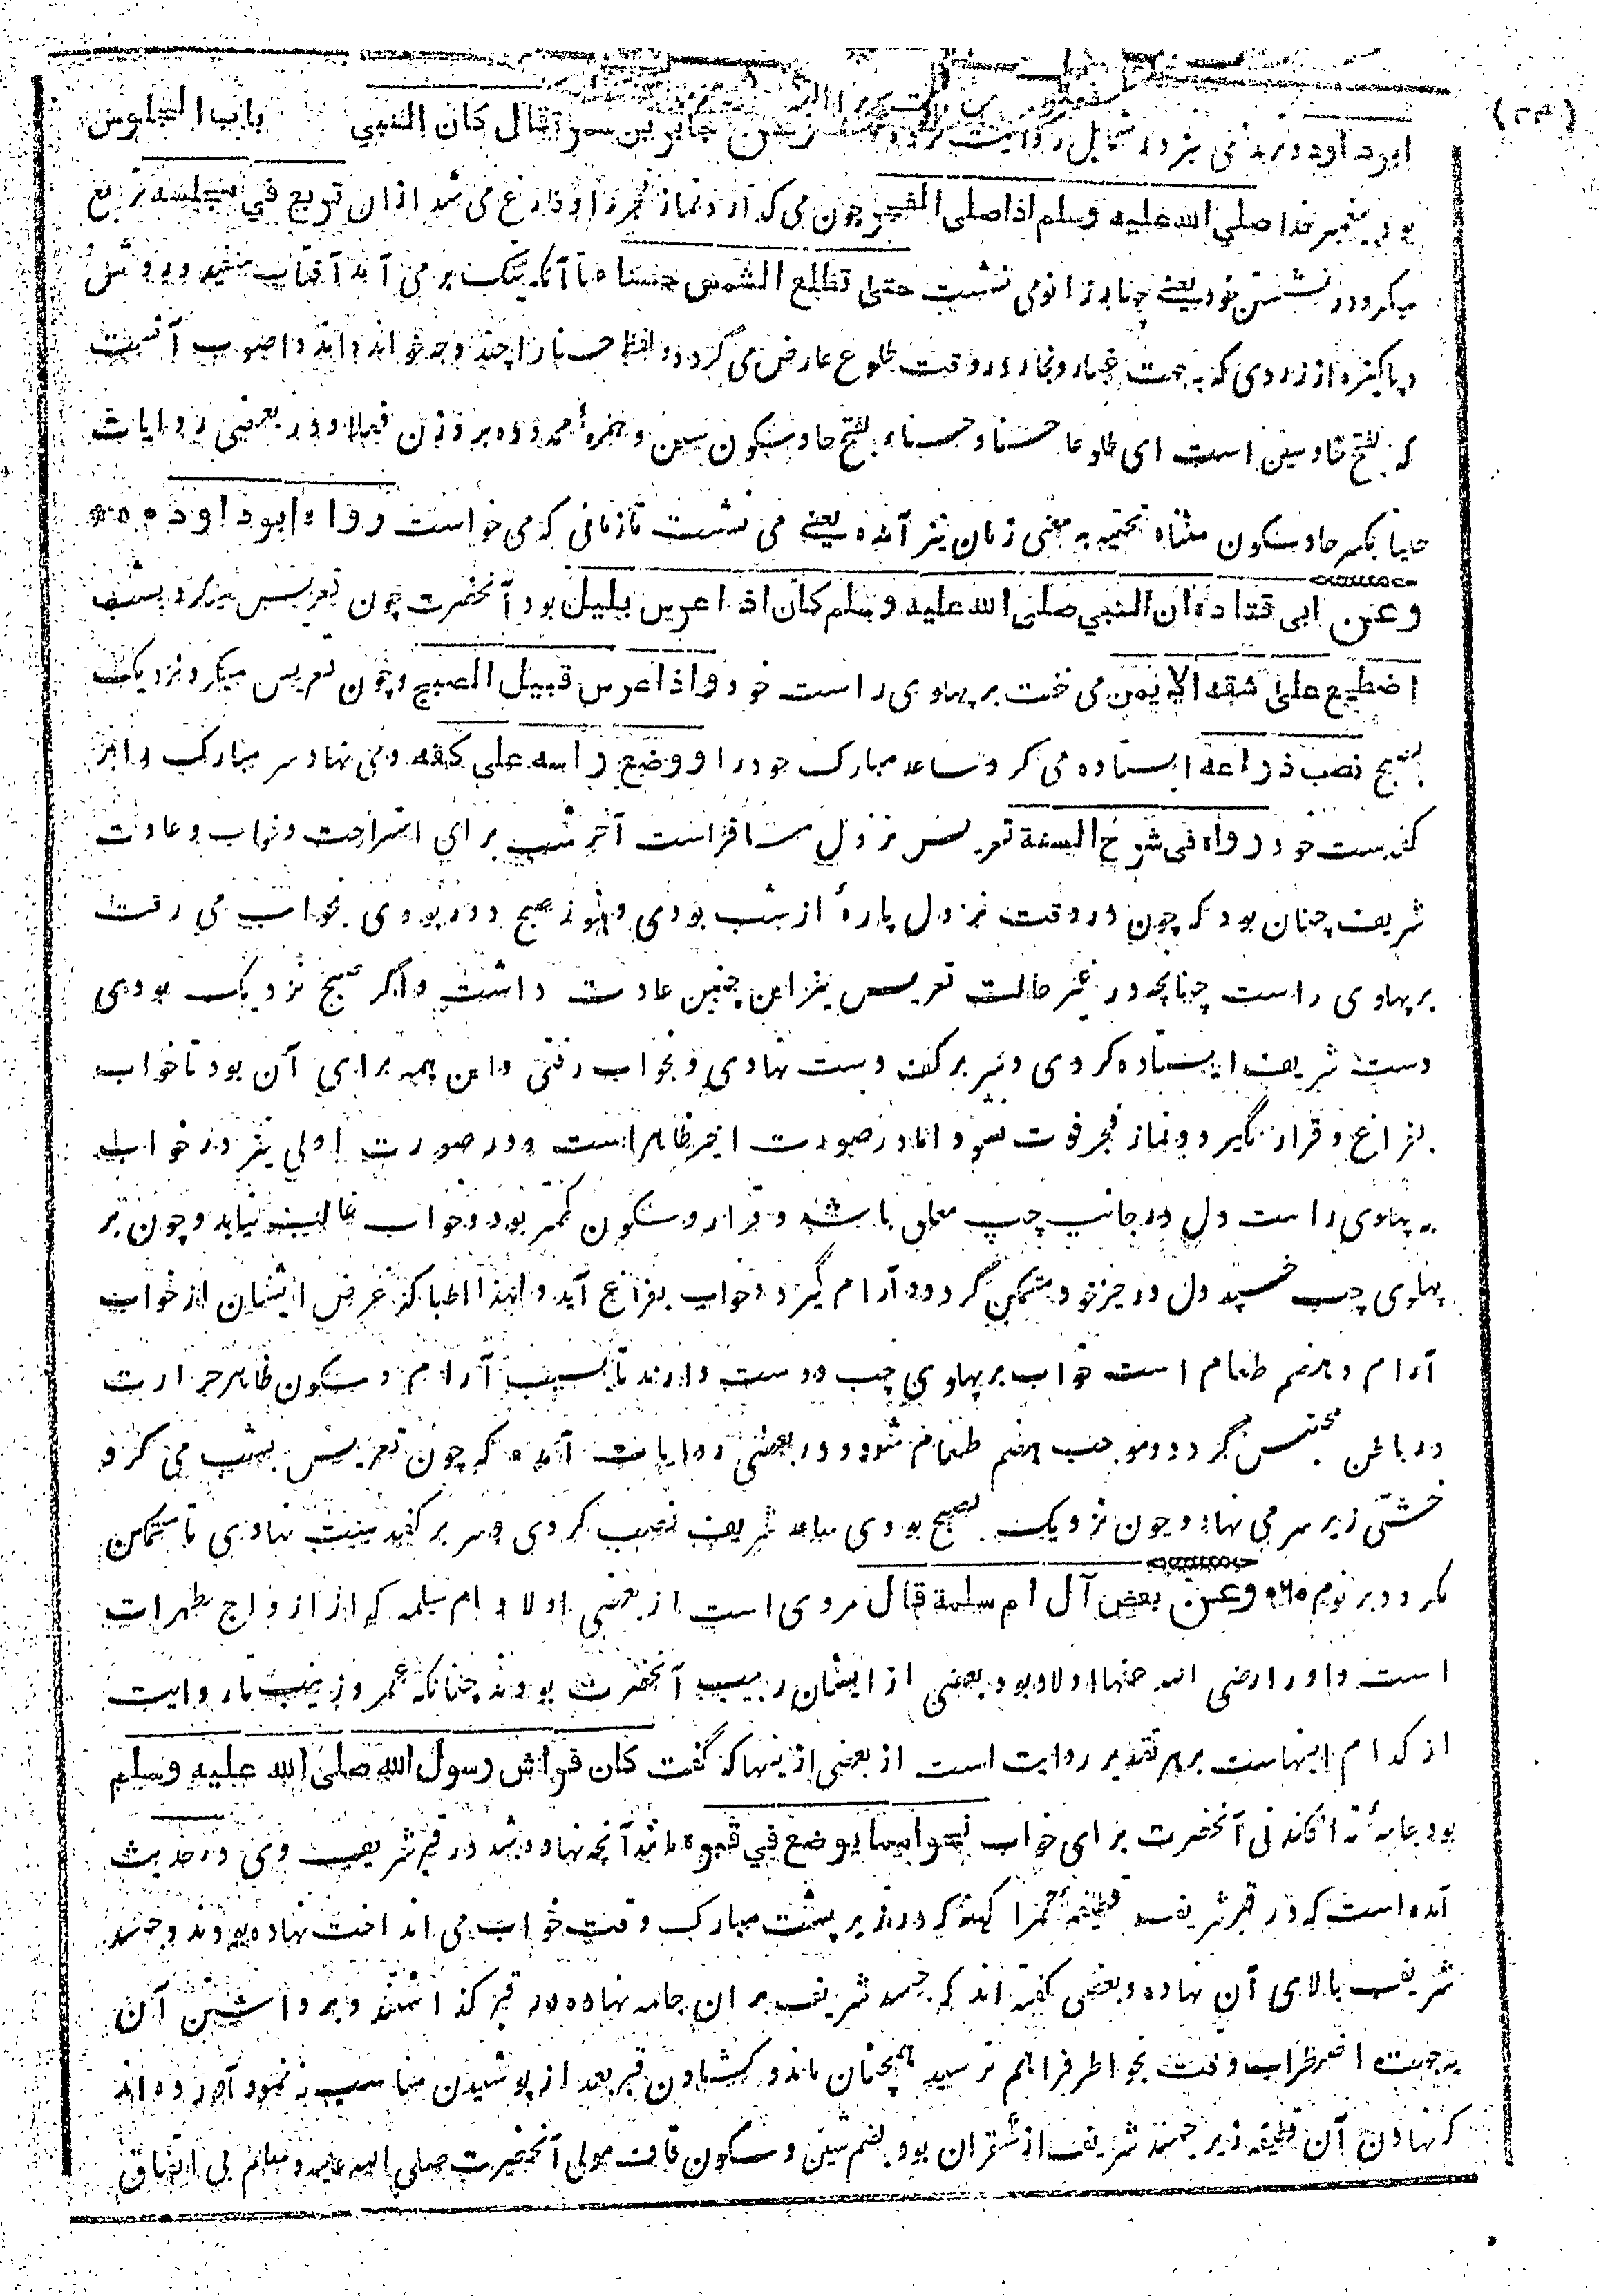 (۳۴)
باب الجلوس
ابوداود و ترمذی نیز در شمائل روایت کرده و عن جابر بن سمرة قال کان النبي
بود پیغمبر خدا صلي الله علیه وسلم اذا صلی الفجر چون می که ارد نماز فجر را و فارغ می شد ازان تربع في مجلسه تربع
میکرد در نشستن خود یعنے چهار زانو می نشست حتی تطلع الشمس حسناء تا آنکه نیک بر می آمد آفتاب سفید و روشن
و پاکیزه از زردی که به جهت غبار و بخار در وقت طلوع عارض می گردد و لفظ حسنا را چند وجه خوانده اند و اصوب آنست
که بفتح حا و سین است ای طلوعا حسنا و حسناء بفتح حا و سکون سین و همزهٔ ممدوده بر وزن فعلاء و در بعضی روایات
حینا بکسر حا و سکون مثناه تحتیه به معنی زمان نیز آمده یعنے می نشست تا زمانی که می خواست رواه ابو داود ۰۰۰
وعن ابی قتادة ان النبي صلی الله علیه وسلم کان اذا عرس بلیل بود آنحضرت چون تعریس میکرد بشب
اضطجع علی شقه الایمن می خفت بر پهلوی راست خود و اذا عرس قبیل الصبح و چون تعریس میکرد نزدیک
بصبح نصب ذراعه ایستاده می کرد ساعد مبارک خود را و وضع راسه علی کفه و می نهاد سر مبارک را بر
کف دست خود رواه فی شرح السنة تعریس نزول مسافر است آخر شب برای استراحت و خواب و عادت
شریف چنان بود که چون در وقت نزول پارهٔ از شب بودی و هنوز صبح دور بودی بخواب می رفت
بر پهلوی راست چنانچه در غیر حالت تعریس نیز این چنین عادت داشت و اگر صبح نزدیک بودی
دست شریف ایستاده کردی و سر بر کف دست نهادی و بخواب رفتی و این همه برای آن بود تا خواب
بفراغ و قرار نگیرد و نماز فجر فوت نشود اما در صورت اخیر ظاهر است و در صورت اولی نیز در خواب
به پهلوی راست دل در جانب چپ معلق باشد و قرار و سکون کمتر بود و خواب غالب نیاید و چون بر
پهلوی چپ خسپد دل در حیز خود متمکن گردد و آرام گیرد و خواب بفراغ آید و لهذا اطبا که غرض ایشان از خواب
آرام و هضم طعام است خواب بر پهلوی چپ دوست دارند تا بسبب آرام و سکون ظاهر حرارت
در باطن محتبس گردد و موجب هضم طعام شود و در بعضی روایات آمده که چون تعریس بشب می کرد
خشتی زیر سر می نهاد و چون نزدیک بصبح بودی ساعد شریف نصب کردی و سر بر کف دست نهادی تا متمکن
نگردد بر نوم ۰۰۰ وعن بعض آل ام سلمة قال مروی است از بعضی اولاد ام سلمه که از ازواج مطهرات
است و او را رضی الله عنها اولاد بود بعضی از ایشان ربیب آنحضرت بودند چنانکه عمر و زینب تا روایت
از کدام اینهاست بر هر تقدیر روایت است از بعضی ازینها که گفت کان فراش رسول الله صلی الله علیه وسلم
بود جامهٔ افکندنی آنحضرت برای خواب نحوا مما یوضع في قبره مانند آنچه نهاده شد در قبر شریف وی در حدیث
آمده است که در قبر شریف قطیفهٔ حمرا کهنه که در زیر پشت مبارک وقت خواب می انداخت نهاده بودند و جسد
شریف بالای آن نهاده و بعضی گفته اند که جسد شریف بر ان جامه نهاده در قبر گذاشتند و برداشتن آن
به جهت اضطراب وقت بخاطر فراهم نرسید همچنان ماند و کشادن قبر بعد از پوشیدن مناسب نه نمود آورده اند
که نهادن آن قطیفه زیر جسد شریف از شقران بود بضم شین و سکون قاف مولی آنحضرت صلی الله علیه وسلم بی اتفاق